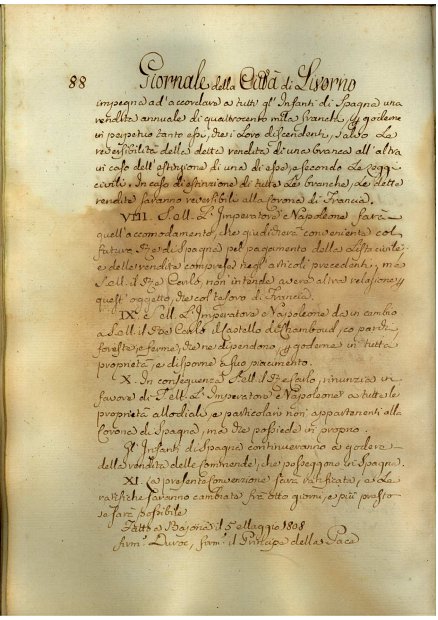 88 Giornale della Città di Livorno
impegna ad'accordare a tutti gl'Infanti di Spagna una
rendita annuale di quattrocento mila franchi, p goderne
in perpetuo tanto essi, che i Loro discendenti, salvo la
reversibilità della detta rendita di una branca all'altra
in caso dell'estinzione di una di esse, e secondo Le Leggi
civili. In caso di estinzione di tutte Le branche, Le dette
rendite saranno reversibili alla Corona di Francia.
VIII. S. M. L'Imperatore Napoleone farà
quell'accomodamento, che giudicherà conveniente col
futuro Re di Spagna pel pagamento della Lista civile
e delle rendite comprese negl'articoli precedenti, ma
S. M. il Re Carlo non intende avere altra relazione p
quest'oggetto, che col tesoro di Francia.
IX. S. M. L'Imperatore Napoleone da in cambio
a S. M. il Re Carlo il Castello di Chambord, co parchi,
foreste, e ferme, che ne dipendono, p goderne in tutta
proprietà, e disporne a suo piacimento.
X. In conseguenza S. M. il Re Carlo, rinunzia in
favore di S. M. L'Imperatore Napoleone a tutte le
proprietà allodiali, e particolari non appartenenti alla
Corona di Spagna, ma che possiede in proprio.
Gl'Infanti di Spagna continueranno a godere
della rendita delle Commende, che posseggono in Spagna.
XI. La presente Convenzione sarà ratificata, e Le
ratifiche saranno cambiate fra otto giorni, e più presto
se sarà possibile
Fatto a Bajona il 5 Maggio 1808
firm.º Duroc, firm.º il Principe della Pace